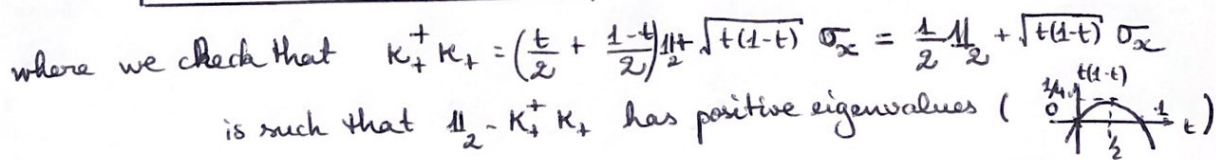 where we check that K₊⁺ K₊ = (t/2 + (1-t)/2) 𝟙₂ + √(t(1-t)) σₓ = 1/2 𝟙₂ + √(t(1-t)) σₓ
is such that 𝟙₂ - K₊⁺ K₊ has positive eigenvalues ( 1/4 0 t(1-t) 1/2 1 t )